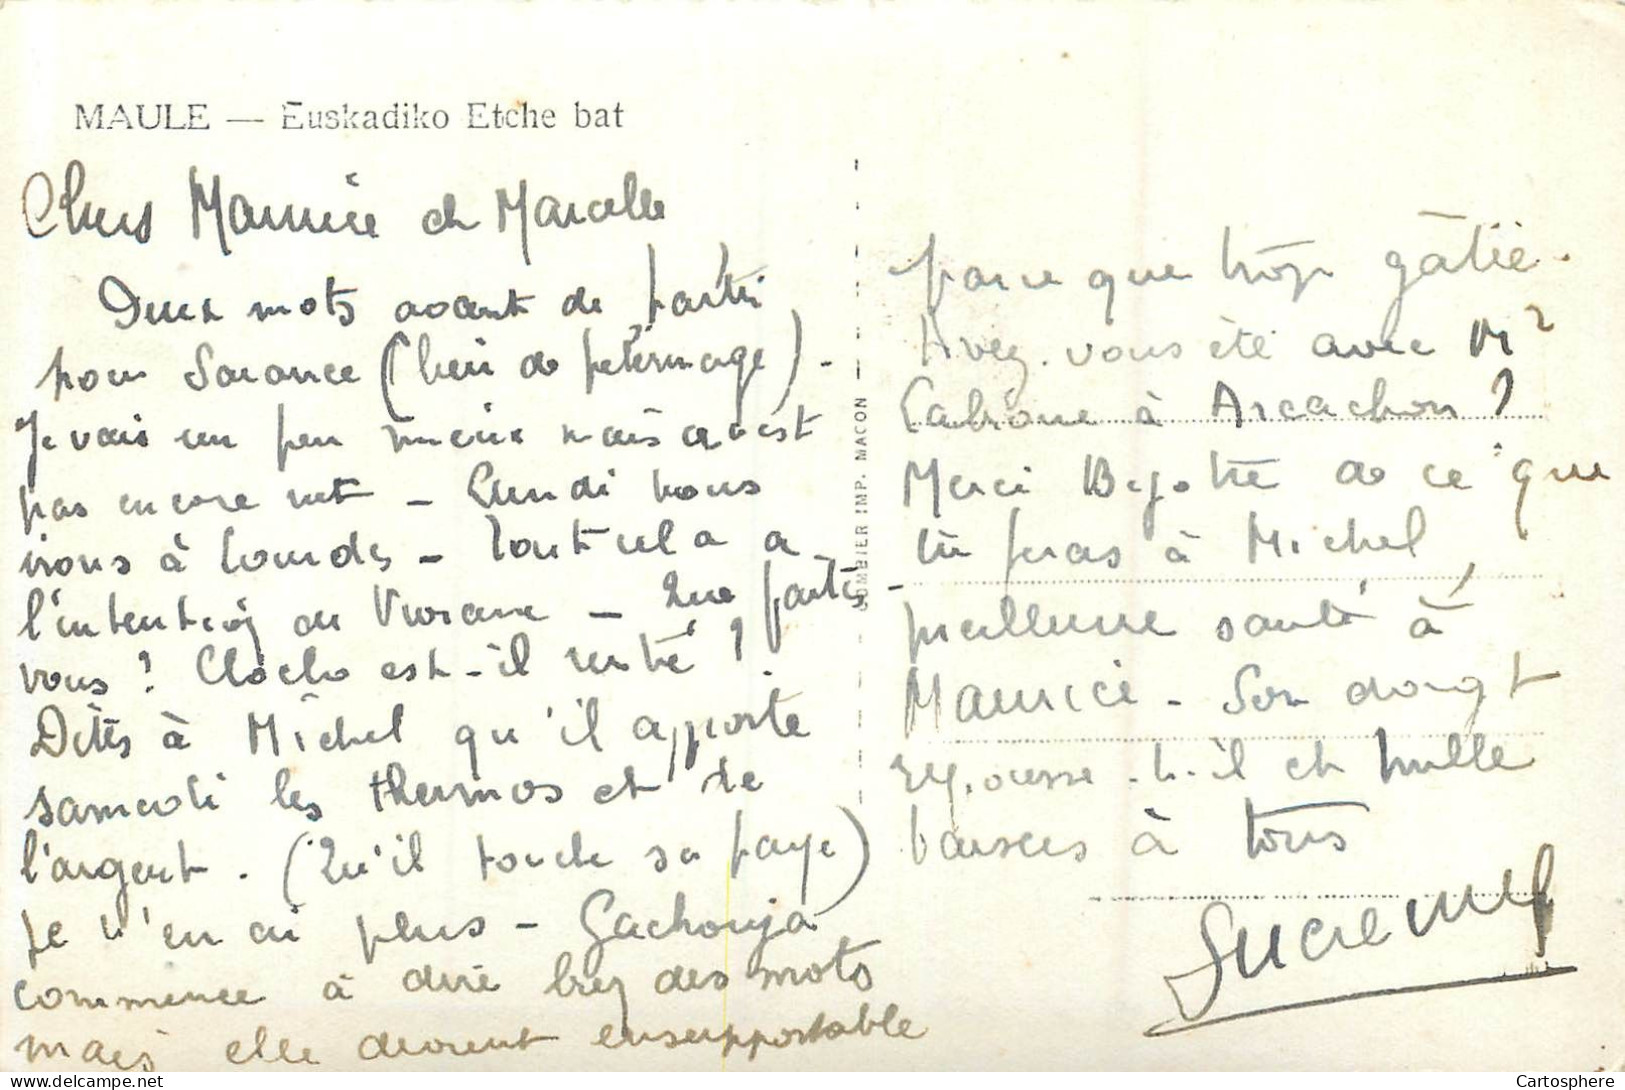 MAULE — Euskadiko Etche bat
Chers Maurice et Marcelle
Deux mots avant de partir
pour Sarance (lieu de pélerinage) -
Je vais un peu mieux mais ce n'est
pas encore net - Lundi nous
irons à Lourdes - Tout cela a
l'intention de Viviane - Que faites-
vous ? est-il resté ?
Dites à Michel qu'il apporte
samedi les thermos et de
l'argent. (Qu'il touche sa paye)
Je n'en ai plus - Gachouja
commence à dire bcq des mots
mais elle devient insupportable
COMBIER IMP. MACON
parce que trop gâtée.
Avez-vous été avec
à Arcachon ?
Merci de ce que
tu feras à Michel,
meilleure santé à
Maurice - Son doigt
repousse-t-il et mille
baisers à tous
Cartosphere